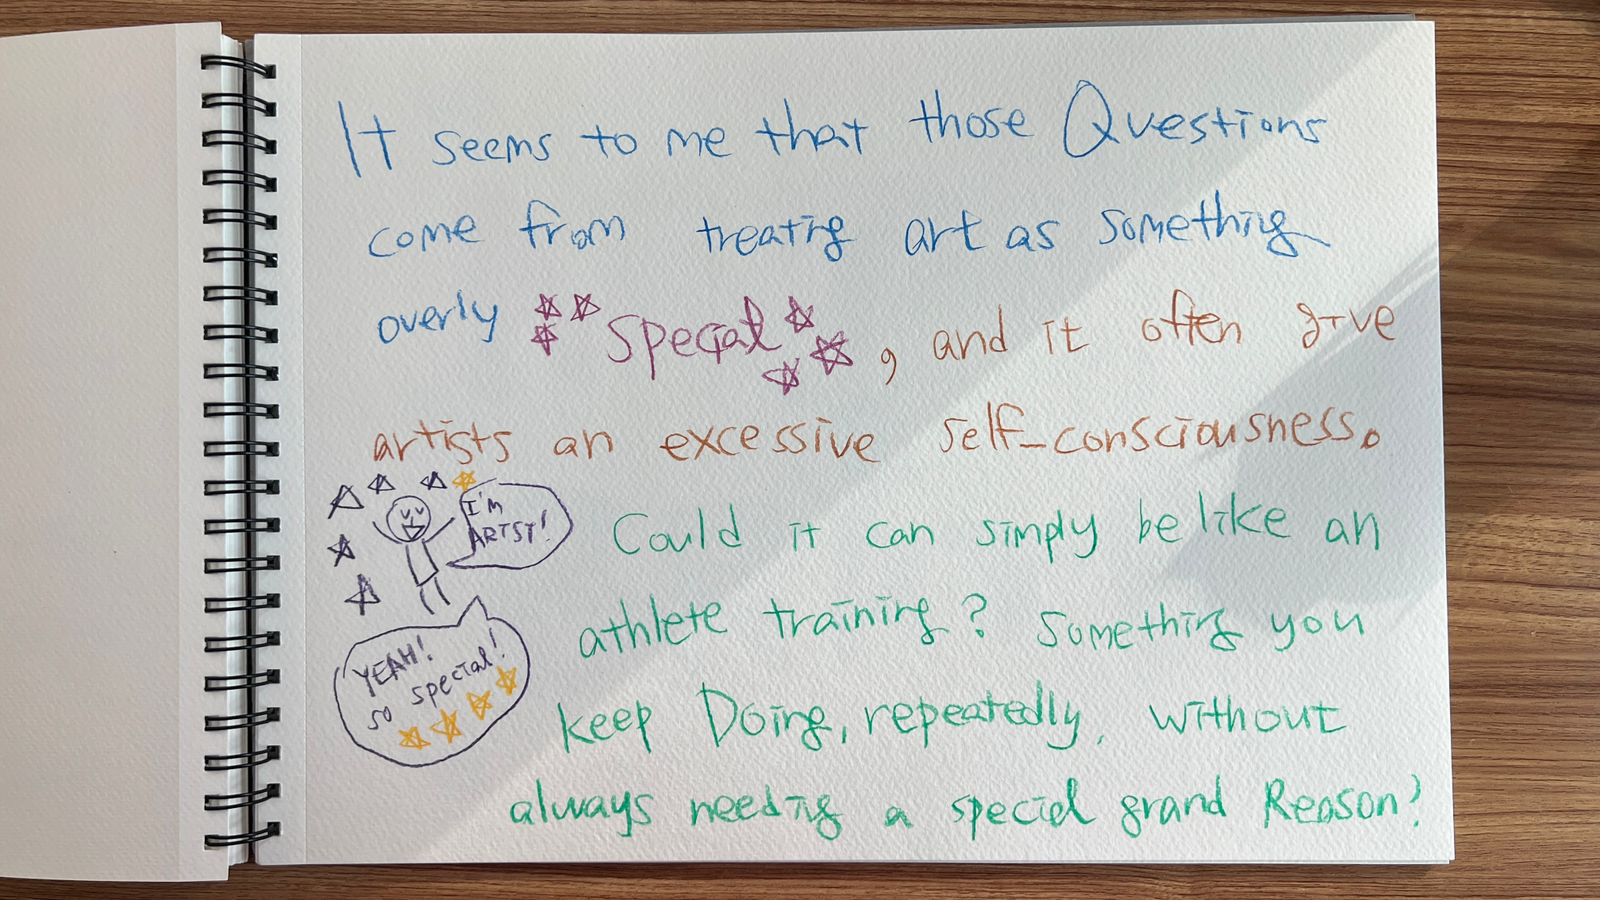 It seems to me that those Questions
come from treating art as something
overly special, and it often give
artists an excessive self-consciousness.
I'M
ARTIST!
Could it can simply be like an
athlete training? Something you
YEAH!
so special!
keep Doing, repeatedly, without
always needing a special grand Reason?